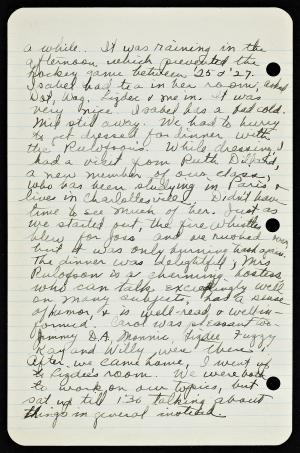 a while. It was raining in the
afternoon which prevented the
hockey game between '25 & '27.
Isabel had tea in her room, asked
Dot, Wag, Lizdee & me in. It was
very nice. Isabel has a bad cold.
Mid still away. We had to hurry
to get dressed for dinner with
the Rulofson's. While dressing, I
had a visit from Ruth
a new member of our class,
who has been studying in Paris &
lives in Charlottesville. Didn't have
time to see much of her. Just as
we started out, the fire whistle
blew for Joss and we rushed over
but it was only burning
The dinner was delightful; Mrs
Rulofson is a charming hostess
who can talk exceedingly well
on many subjects, has a sense
of humor, & is well-read & well-in-
formed. Carol was pleasant too.
Jimmy D.A., Monnie, Lizdee Fuzzy
Kay and Willy were there.
After we came home, I went up
to Lizdee's room. We were both
to work on our topics, but
sat up till 1:30 talking about
things in general instead.